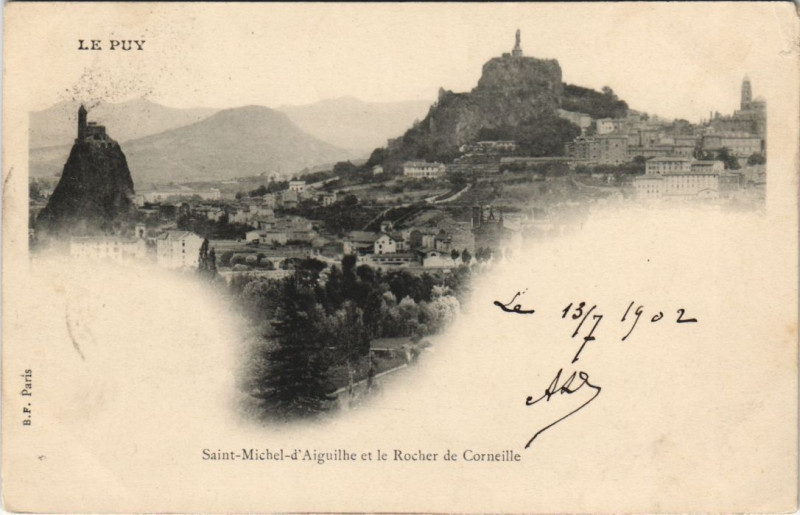 LE PUY
Le 13/7 1902
B.F. Paris
Saint-Michel-d'Aiguilhe et le Rocher de Corneille